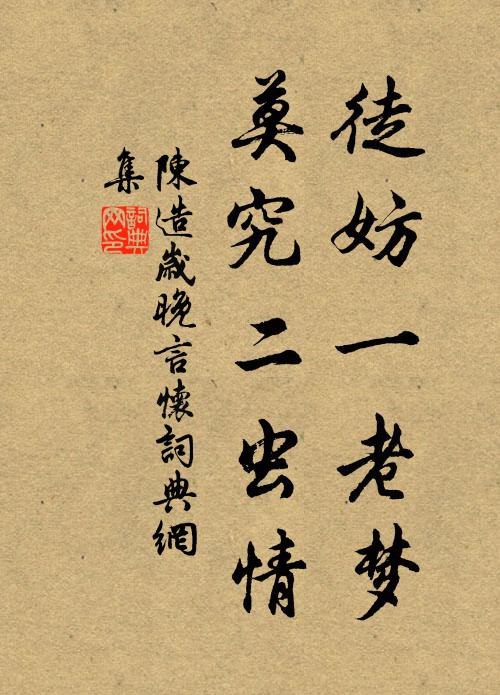 徒妨一老梦
莫究二虫情
陳造歲晚言懷詞典網
集
詞典网印